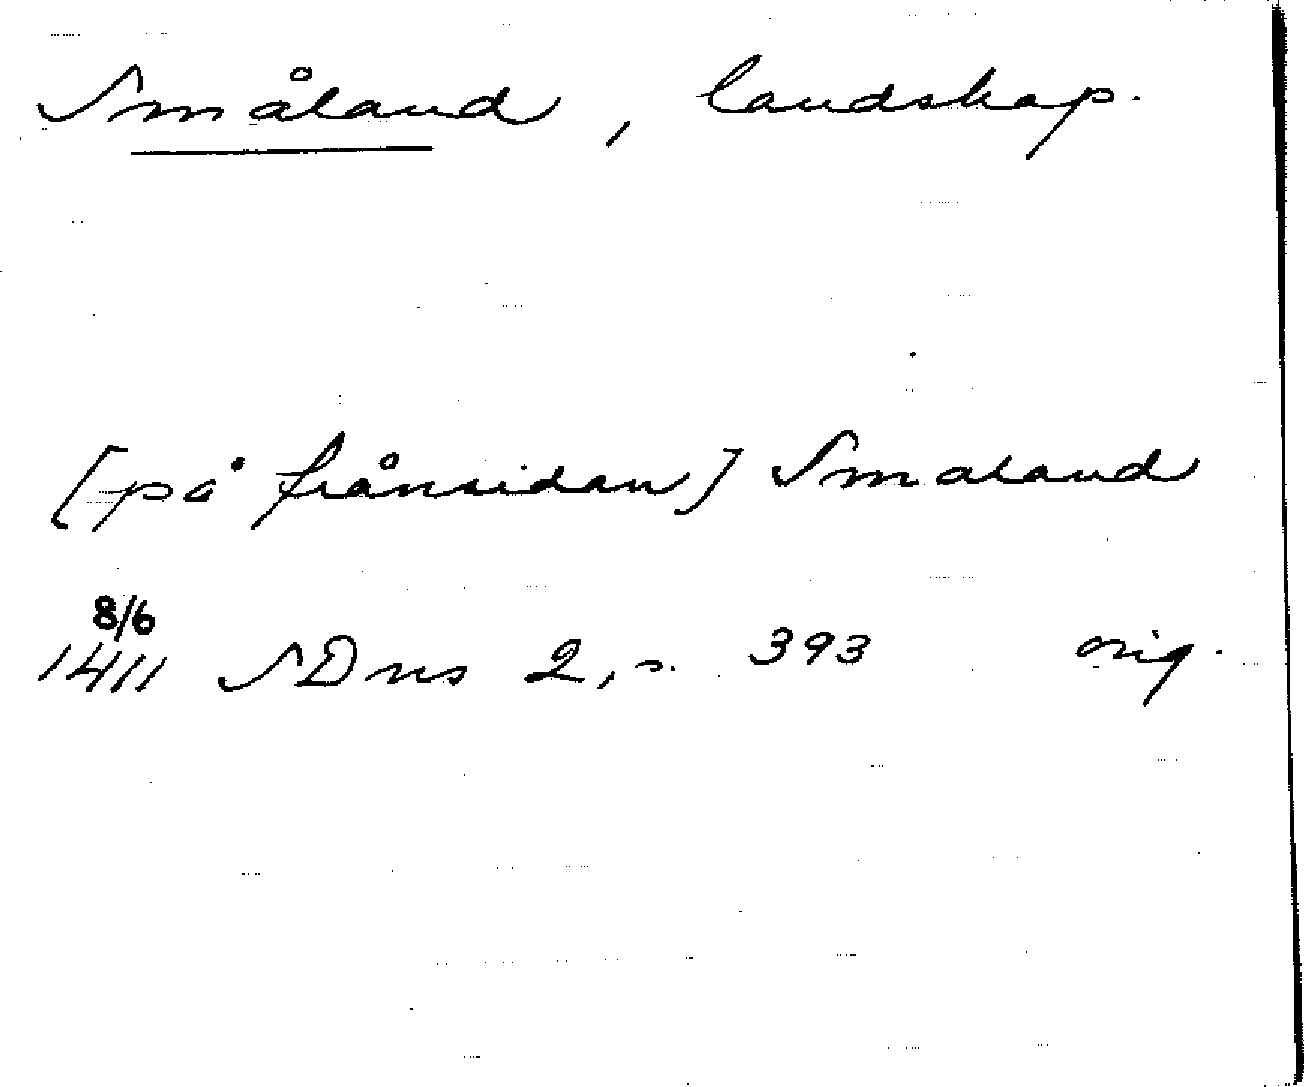 Småland, landskap.
[på frånsidan] Smaland
8/6
1411 SDns 2, s. 393 orig.